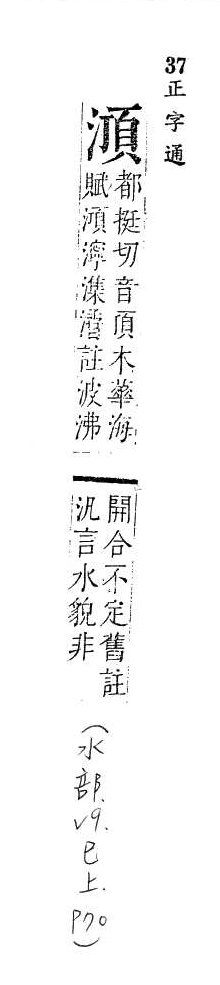 37 正字通
㴿
都挺切音頂木華海
賦㴿濘潗㵫註波沸
開合不定舊註
汎言水貌非
(水部.v9.巳上.P70)